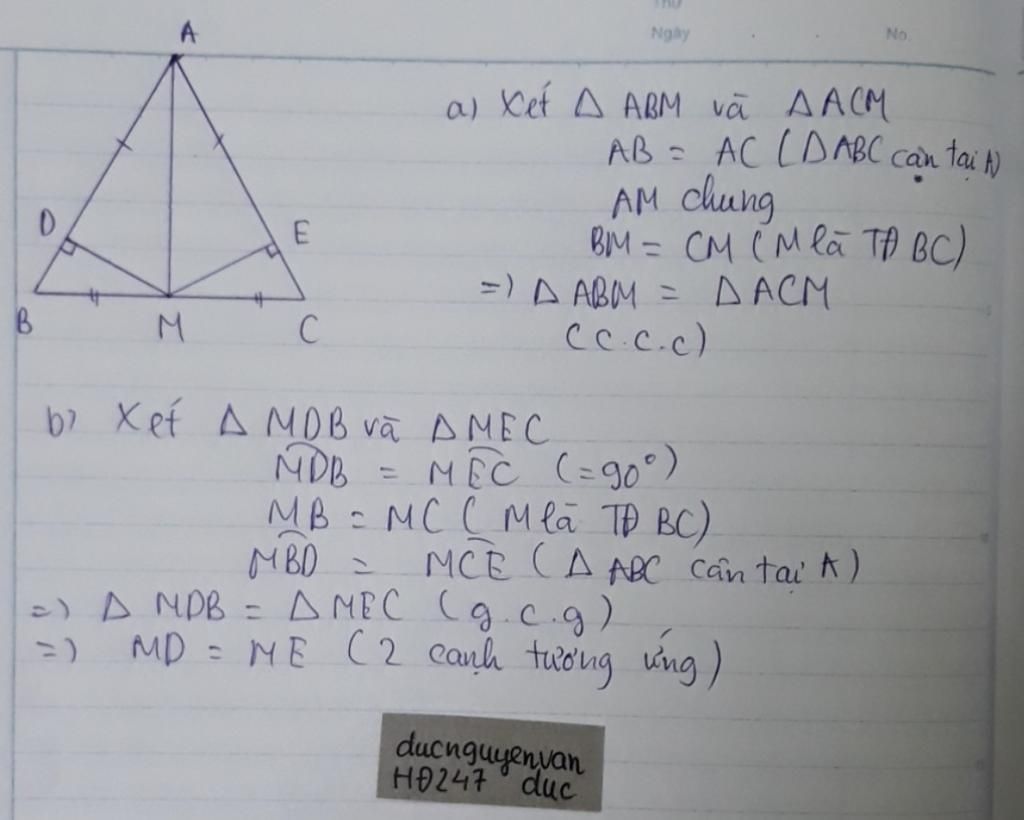 Thứ
Ngày . . No.
A
D
E
B
M
C
a) Xét Δ ABM và Δ ACM
AB = AC (ΔABC cận tại A)
AM chung
BM = CM (M là TĐ BC)
=) Δ ABM = Δ ACM
(c.c.c)
b) Xét Δ MDB và Δ MEC
MDB = MEC (=90°)
MB = MC ( M là TĐ BC)
MBD = MCE ( Δ ABC cân tại A)
=) Δ MDB = Δ MEC (g.c.g)
=) MD = ME (2 cạnh tương ứng)
ducnguyenvan
HĐ247 duc